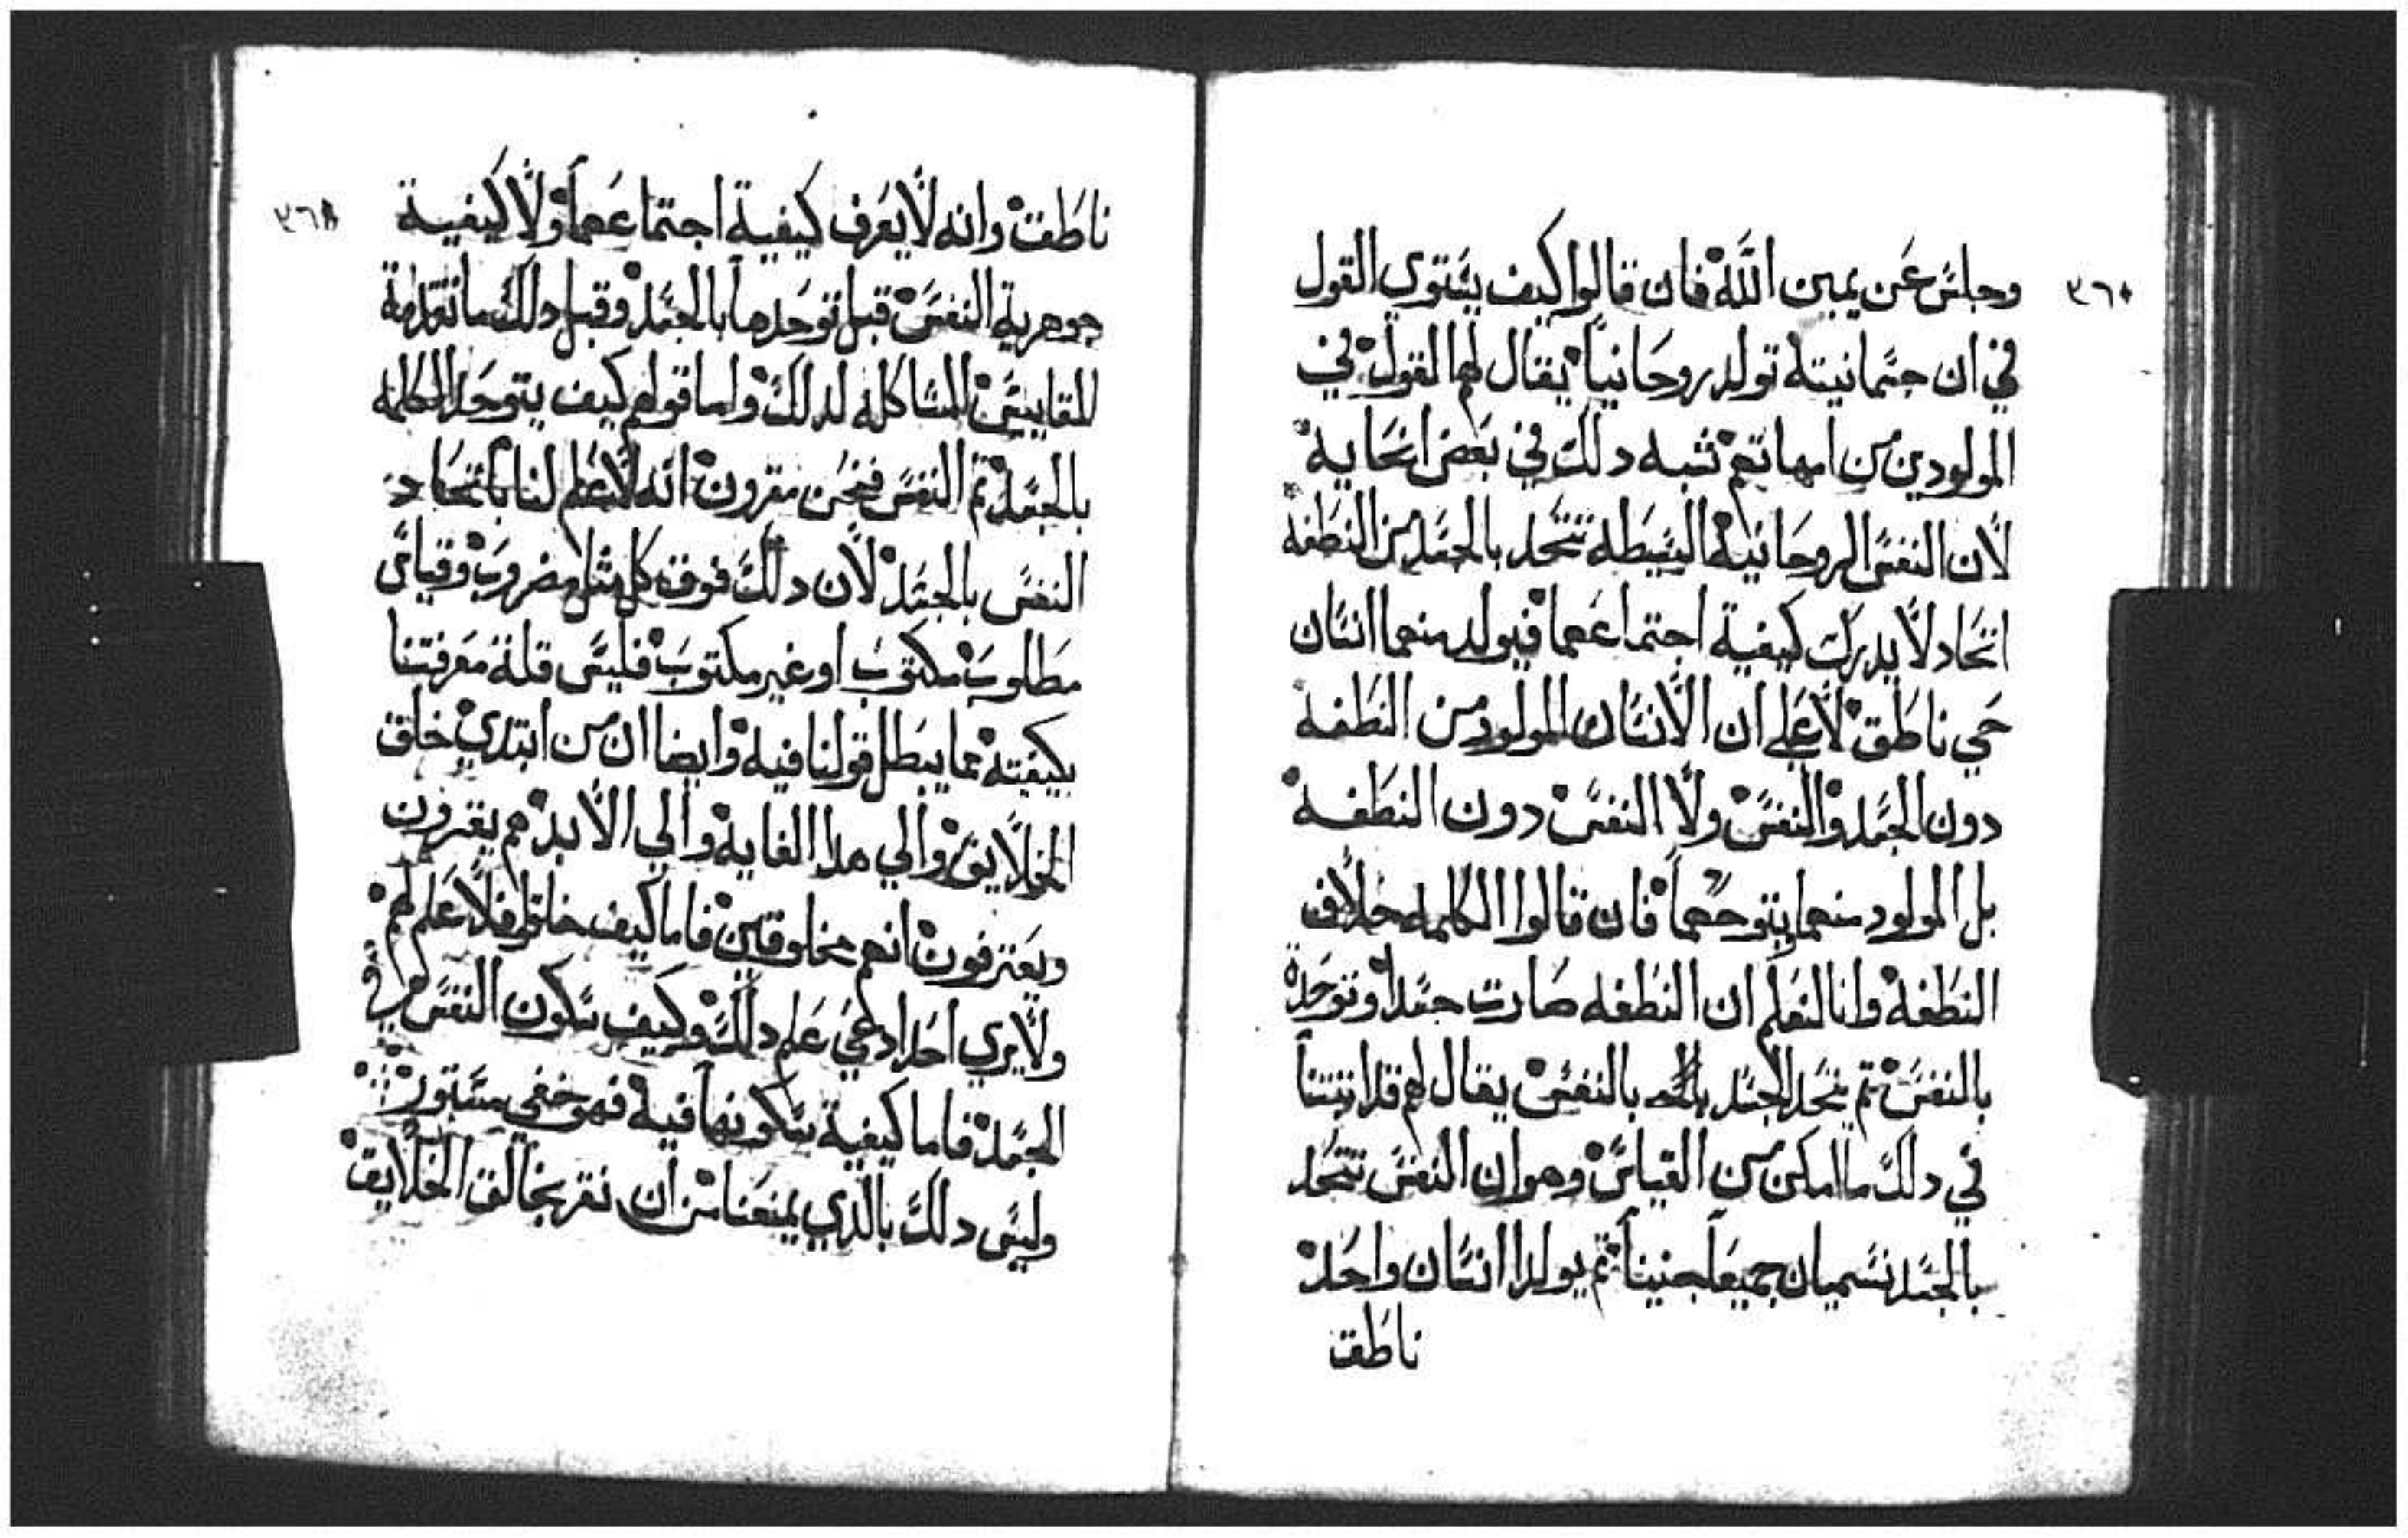 وجلس عن يمين الله فان قالوا كيف يستوي القول
في ان جسمانيته تولد روحانيا يقال لهم القول في
المولودين من امهاتهم تشبه دلك في بعض انحايه
لان النفس الروحانية البسيطة تتحد بالجسد من النطفه
اتحاد لا يدرك كيفية اجتماعهما فيولد منهما انسان
حي ناطق لا على ان الانسان المولود من النطفة
دون الجسد والنفس ولا النفس دون النطفة
بل المولود منهما بتوحدهما فان قالوا الكلمه خلاف
النطفة وانا لنعلم ان النطفه صارت جسدا وتوحدة
بالنفس تم يتحد الجسد بالنفس يقال لهم قد اتبتنا
في دلك ما امكن من القياس وهو ان النفس تتحد
بالجسد تسميان جميعا جنينا تم يولدا انسان واحد
ناطق
٣٦٨
ناطق وانه لا يعرف كيفية اجتماعهما ولا كيفية
جوهرية النفس قبل توحدها بالجسد وقبل دلك ما تقدمة
المقاييس المشاكله لدلك واما قولهم كيف يتوحد الكلمه
بالجسد تم النفس فنحن مقرون انه لا علم لنا باتحاد
النفس بالجسد لان دلك فوق كل مثل مضروب وقياس
مطلوب مكتوب او غير مكتوب فليس قلة معرفتنا
بكيفيته مما يبطل قولنا فيه وايضا ان من ابتدي خلق
الخلايق والي هدا الغاية والي الابد هم يقرون
ويعترفون انهم مخلوقين فاما كيف خلقوا فلا علم لهم
ولا يري احد ادعي علم دلك وكيف تكون النفس في
الجسد فاما كيفية تكونها فيه فهو خفي مستور
وليس دلك بالدي يمنعنا من ان نقر بخالق الخلايق